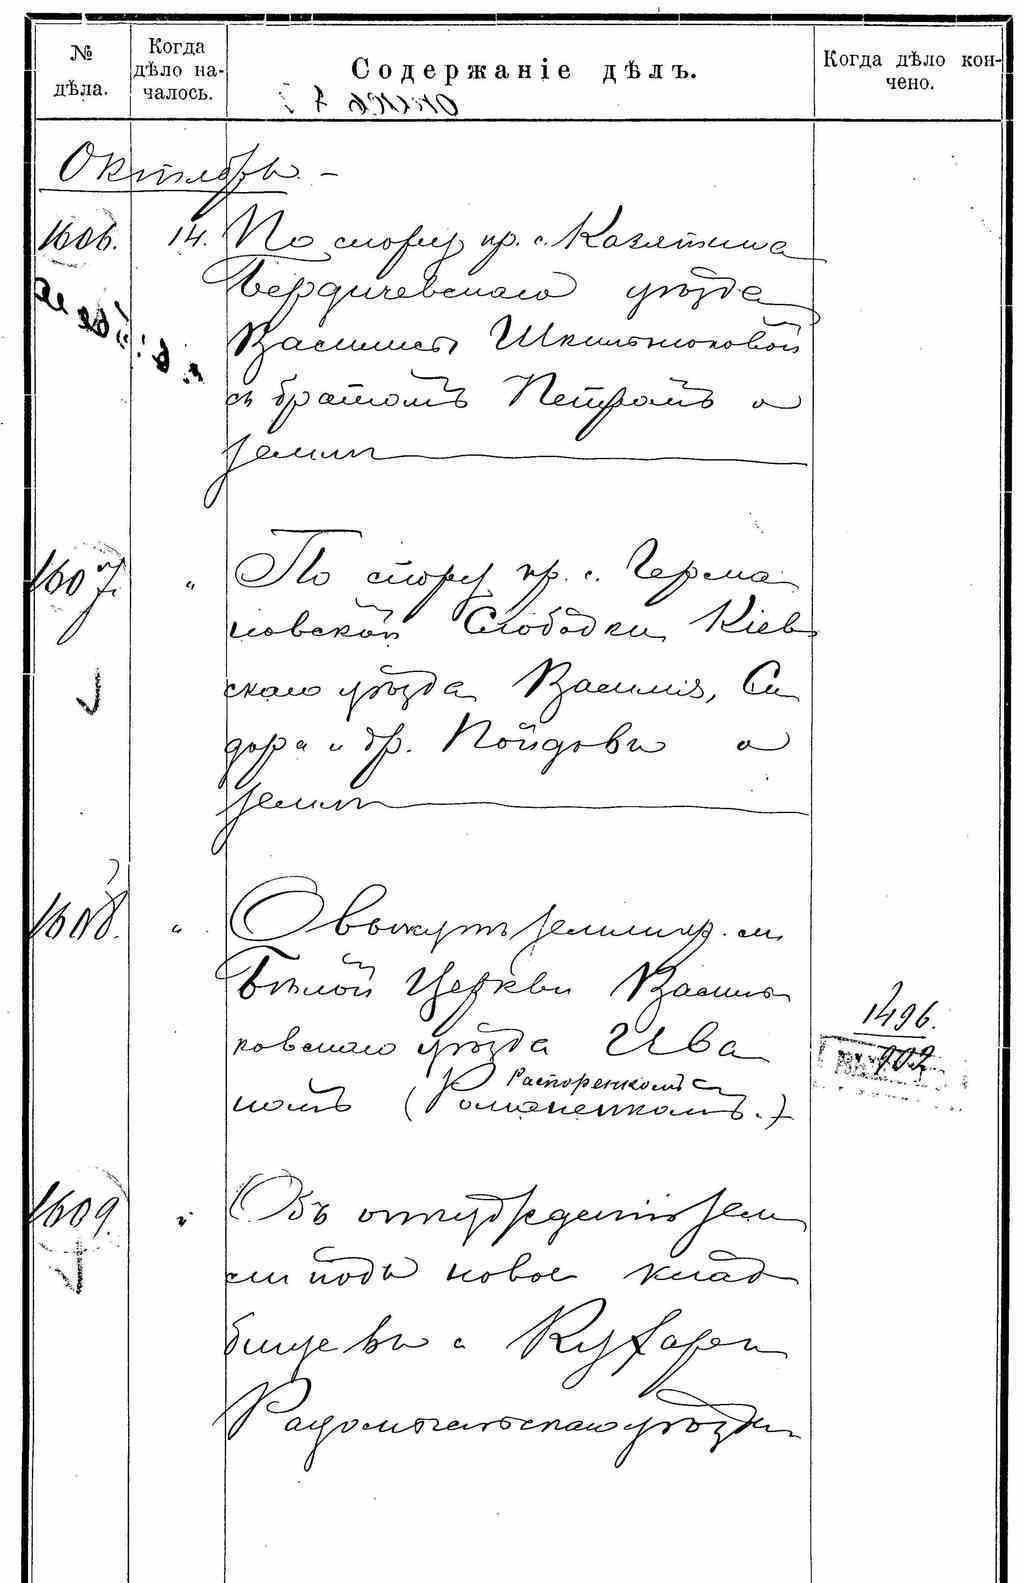 № дѣла.
Когда дѣло на-чалось.
Содержаніе дѣлъ.
Когда дѣло кон-чено.
Октябрь. –
1606. 14. По спору кр. с. Казятина
Бердичевскаго уѣзда
Василисы Шкильнюковой
съ братомъ Петромъ о
землѣ
1607. " По спору кр. с. Герма
новской Слободки Кіев
скаго уѣзда Василія, Си
дора и др. Пойдовъ о
землѣ
1608. " О выкупѣ земли кр. м.
Бѣлой Церкви Василь
ковскаго уѣзда Ива
1496.
902
Распоренкомъ
номъ (Романенкомъ.)
1609. " Объ отчужденіи зем
ли подъ новое клад
бище въ с Кухарѣ
Радомысльскаго уѣзда